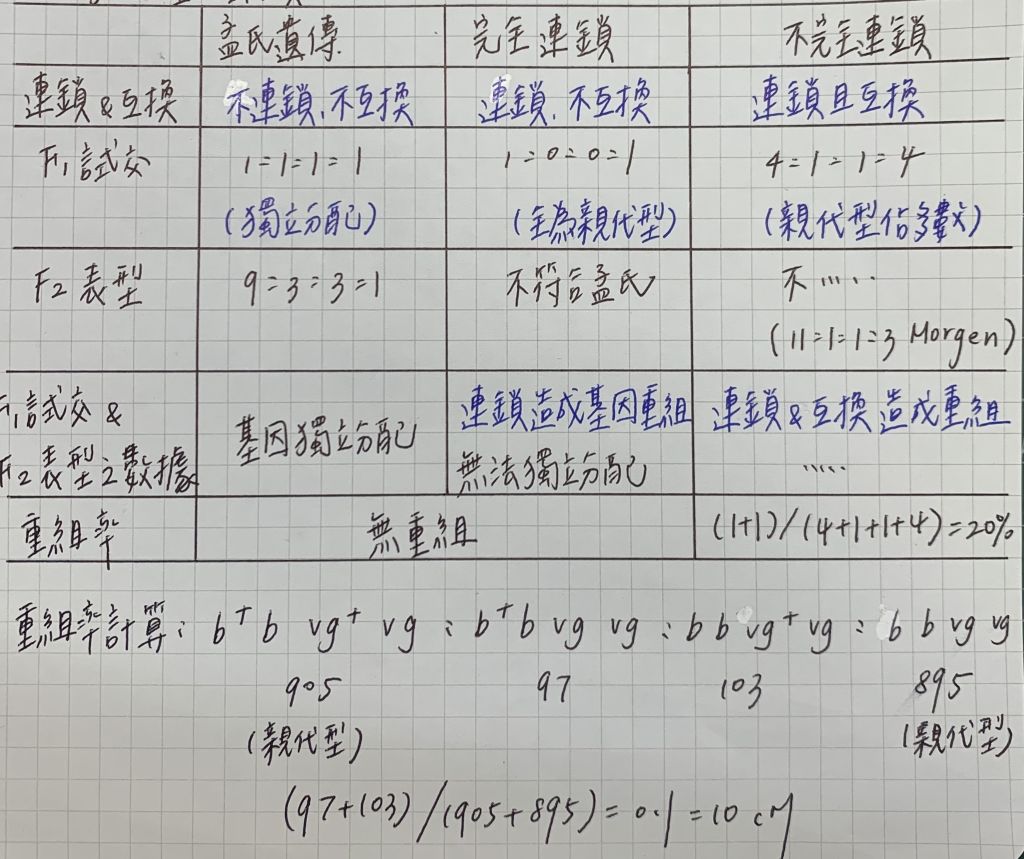 孟氏遺傳 完全連鎖 不完全連鎖
連鎖&互換 不連鎖、不互換 連鎖、不互換 連鎖且互換
F1試交 1:1:1:1 1:0:0:1 4:1:1:4
(獨立分配) (全為親代型) (親代型佔多數)
F2表型 9:3:3:1 不符合孟氏 不.....
(11:1:1:3 Morgen)
F1試交 & 連鎖造成基因重組 連鎖&互換造成重組
基因獨立分配
F2表型之數據 無法獨立分配 .....
重組率 無重組 (1+1)/(4+1+1+4)=20%
重組率計算: b+b vg+ vg : b+b vg vg : b b vg+ vg : b b vg vg
905 97 103 895
(親代型) (親代型)
(97+103)/(905+895)=0.1=10 cM